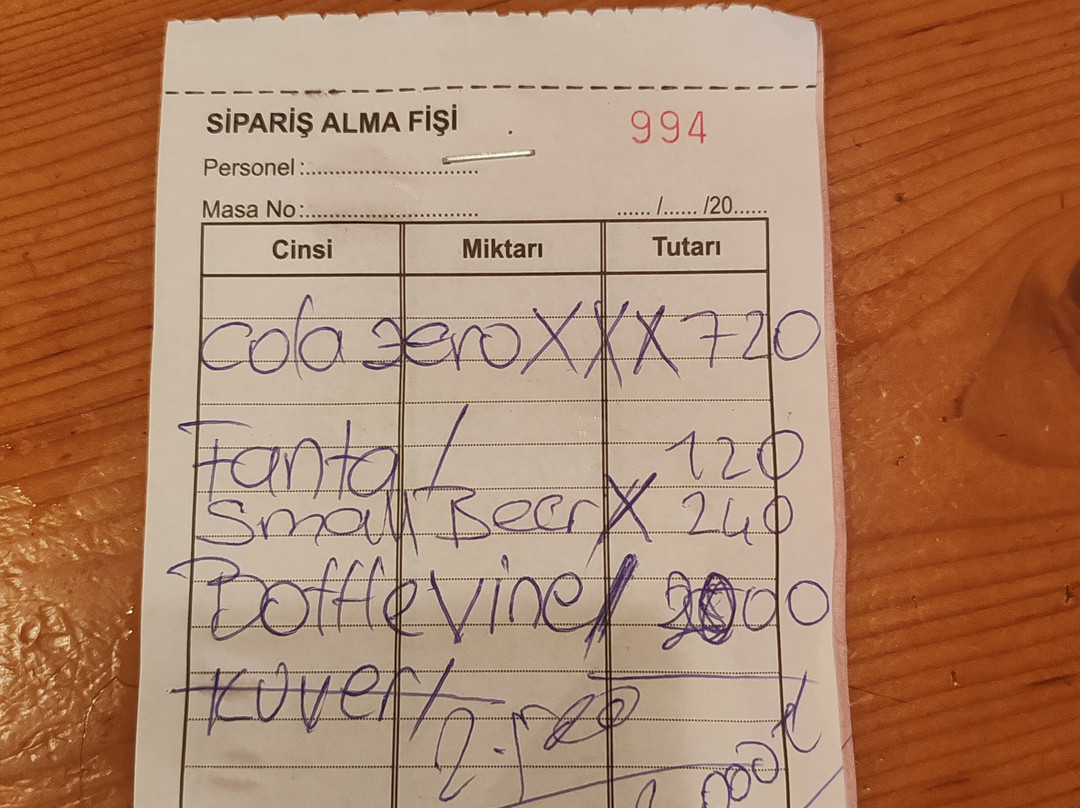 SİPARİŞ ALMA FİŞİ 994
Personel :..............................
Masa No:.............................. ...... /...... /20......
Cinsi Miktarı Tutarı
cola zero X X X 720
Fanta / 120
Small Beer X 240
Bottle Vine / 2000
Kuver /
000 ₺